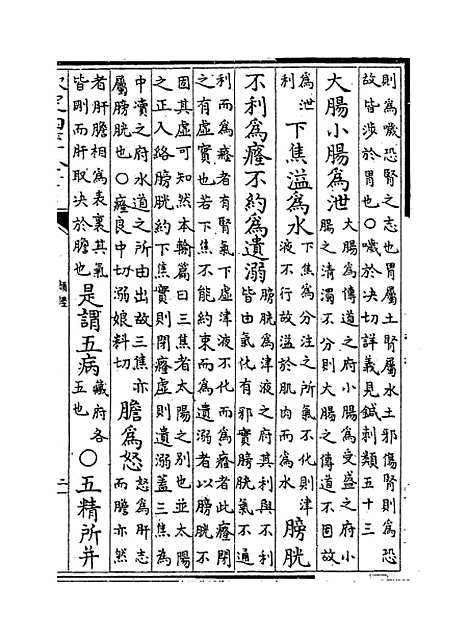 則爲噦恐腎之志也胃屬土腎屬水土邪傷腎則爲恐
故皆渉於胃也○噦於决切詳義見鍼刺類五十三
大腸小腸爲泄
大腸爲傳道之府小腸爲受盛之府小
腸之清濁不分則大腸之傳道不固故
爲泄
利
下焦溢爲水
下焦爲分注之所氣不化則津
液不行故溢於肌肉而爲水
膀胱
不利爲癃不約爲遺溺
膀胱爲津液之府其利與不利
皆由氣化有邪實膀胱氣不通
利而爲癃者有腎氣下虚津液不化而爲癃者此癃閉
之有虚實也若下焦不能約束而爲遺溺者以膀胱不
固其虚可知然本輸篇曰三焦者太陽之别也並太陽
之正入絡膀胱約下焦實則閉癃虚則遺溺蓋三焦爲
中瀆之府水道之所由出故三焦亦
屬膀胱也○癃良中切溺娘料切
膽爲怒
怒爲肝志
而膽亦然
者肝膽相爲表裏其氣
皆剛而肝取决於膽也
是謂五病
藏府各
五也
○五精所并
類經